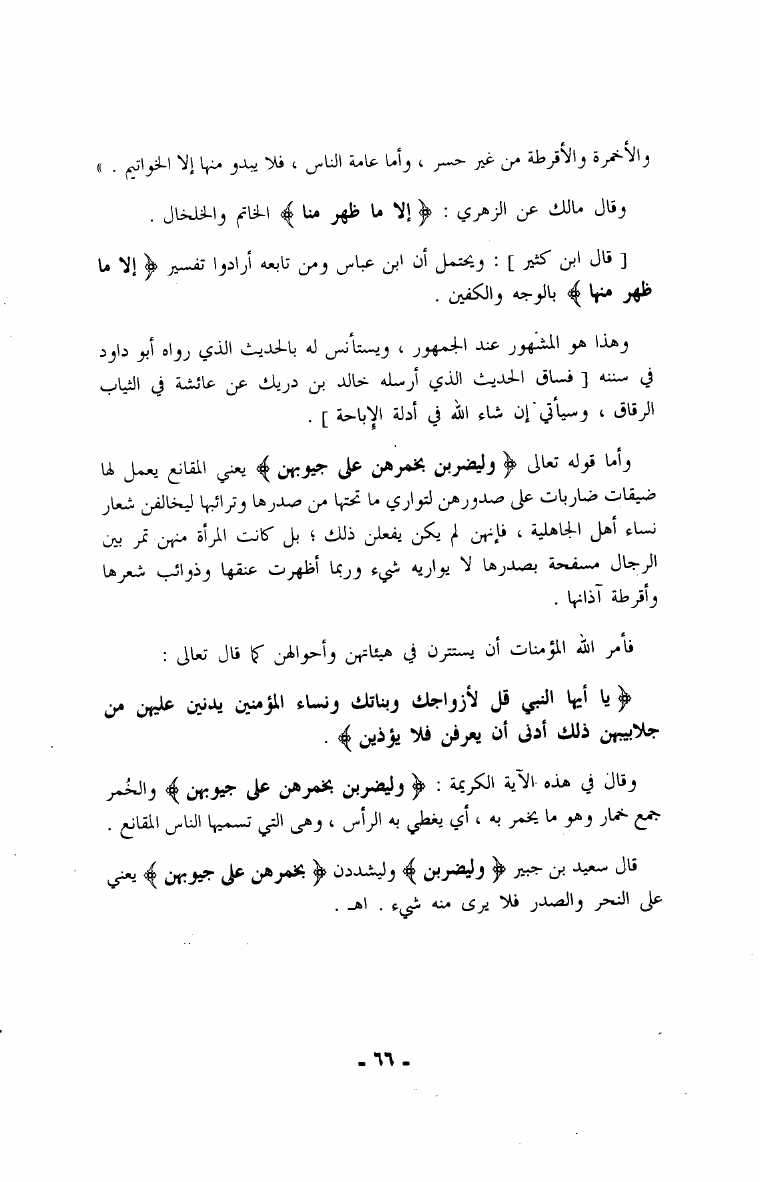 والأخمرة والأقرطة من غير حسر ، وأما عامة الناس ، فلا يبدو منها إلا الخواتيم . »
وقال مالك عن الزهري : ﴿ إلا ما ظهر منا ﴾ الخاتم والخلخال .
[ قال ابن كثير ] : ويحتمل أن ابن عباس ومن تابعه أرادوا تفسير ﴿ إلا ما
ظهر منها ﴾ بالوجه والكفين .
وهذا هو المشهور عند الجمهور ، ويستأنس له بالحديث الذي رواه أبو داود
في سننه [ فساق الحديث الذي أرسله خالد بن دريك عن عائشة في الثياب
الرقاق ، وسيأتي إن شاء الله في أدلة الإباحة ] .
وأما قوله تعالى ﴿ وليضربن بخمرهن على جيوبهن ﴾ يعني المقانع يعمل لها
ضيقات ضاربات على صدورهن لتواري ما تحتها من صدرها وترائبها ليخالفن شعار
نساء أهل الجاهلية ، فإنهن لم يكن يفعلن ذلك ؛ بل كانت المرأة منهن تمر بين
الرجال مسفحة بصدرها لا يواريه شيء وربما أظهرت عنقها وذوائب شعرها
وأقرطة آذانها .
فأمر الله المؤمنات أن يستترن في هيئاتهن وأحوالهن كما قال تعالى :
﴿ يا أيها النبي قل لأزواجك وبناتك ونساء المؤمنين يدنين عليهن من
جلابيبهن ذلك أدنى أن يعرفن فلا يؤذين ﴾ .
وقال في هذه الآية الكريمة : ﴿ وليضربن بخمرهن على جيوبهن ﴾ والخُمر
جمع خمار وهو ما يخمر به ، أي يغطي به الرأس ، وهى التي تسميها الناس المقانع .
قال سعيد بن جبير ﴿ وليضربن ﴾ وليشددن ﴿ بخمرهن على جيوبهن ﴾ يعني
على النحر والصدر فلا يرى منه شيء . اهـ .
- ٦٦ -